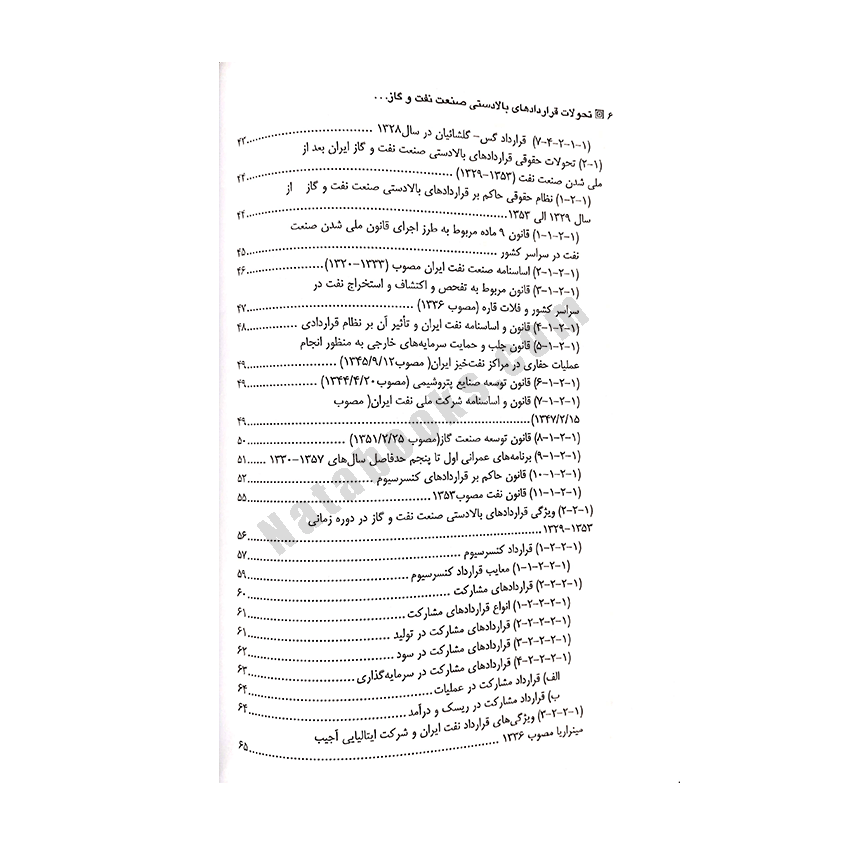 ۶ ▣ تحولات قراردادهای بالادستی صنعت نفت و گاز...
(۱-۱-۲-۴-۷) قرارداد گس- گلشائیان در سال۱۳۲۸ ........ ۴۳
(۱-۲) تحولات حقوقی قراردادهای بالادستی صنعت نفت و گاز ایران بعد از
ملی شدن صنعت نفت (۱۳۵۳-۱۳۲۹) ........ ۴۴
(۱-۲-۱) نظام حقوقی حاکم بر قراردادهای بالادستی صنعت نفت و گاز از
سال ۱۳۲۹ الی ۱۳۵۳ ........ ۴۴
(۱-۲-۱-۱) قانون ۹ ماده مربوط به طرز اجرای قانون ملی شدن صنعت
نفت در سراسر کشور ........ ۴۵
(۱-۲-۱-۲) اساسنامه صنعت نفت ایران مصوب (۱۳۳۳-۱۳۲۰) ........ ۴۶
(۱-۲-۱-۳) قانون مربوط به تفحص و اکتشاف و استخراج نفت در
سراسر کشور و فلات قاره (مصوب ۱۳۳۶) ........ ۴۷
(۱-۲-۱-۴) قانون و اساسنامه نفت ایران و تأثیر آن بر نظام قراردادی ........ ۴۸
(۱-۲-۱-۵) قانون جلب و حمایت سرمایه‌های خارجی به منظور انجام
عملیات حفاری در مراکز نفت‌خیز ایران( مصوب۱۳۴۵/۹/۱۲) ........ ۴۹
(۱-۲-۱-۶) قانون توسعه صنایع پتروشیمی (مصوب۱۳۴۴/۴/۲۰) ........ ۴۹
(۱-۲-۱-۷) قانون و اساسنامه شرکت ملی نفت ایران( مصوب
۱۳۴۷/۲/۱۵) ........ ۴۹
(۱-۲-۱-۸) قانون توسعه صنعت گاز(مصوب ۱۳۵۱/۲/۲۵) ........ ۵۰
(۱-۲-۱-۹) برنامه‌های عمرانی اول تا پنجم حدفاصل سال‌های ۱۳۵۷-۱۳۳۰ ...... ۵۱
(۱-۲-۱-۱۰) قانون حاکم بر قراردادهای کنسرسیوم ........ ۵۲
(۱-۲-۱-۱۱) قانون نفت مصوب۱۳۵۳ ........ ۵۵
(۱-۲-۲) ویژگی قراردادهای بالادستی صنعت نفت و گاز در دوره زمانی
۱۳۵۳-۱۳۲۹ ........ ۵۶
(۱-۲-۲-۱) قرارداد کنسرسیوم ........ ۵۷
(۱-۲-۲-۱-۱) معایب قرارداد کنسرسیوم ........ ۵۹
(۱-۲-۲-۲) قراردادهای مشارکت ........ ۶۰
(۱-۲-۲-۲-۱) انواع قراردادهای مشارکت ........ ۶۱
(۱-۲-۲-۲-۲) قراردادهای مشارکت در تولید ........ ۶۱
(۱-۲-۲-۲-۳) قراردادهای مشارکت در سود ........ ۶۲
(۱-۲-۲-۲-۴) قراردادهای مشارکت در سرمایه‌گذاری ........ ۶۳
الف) قرارداد مشارکت در عملیات ........ ۶۴
ب) قرارداد مشارکت در ریسک و درآمد ........ ۶۴
(۱-۲-۲-۳) ویژگی‌های قرارداد نفت ایران و شرکت ایتالیایی آجیب
مینراریا مصوب ۱۳۳۶ ........ ۶۵
Natabooks.com